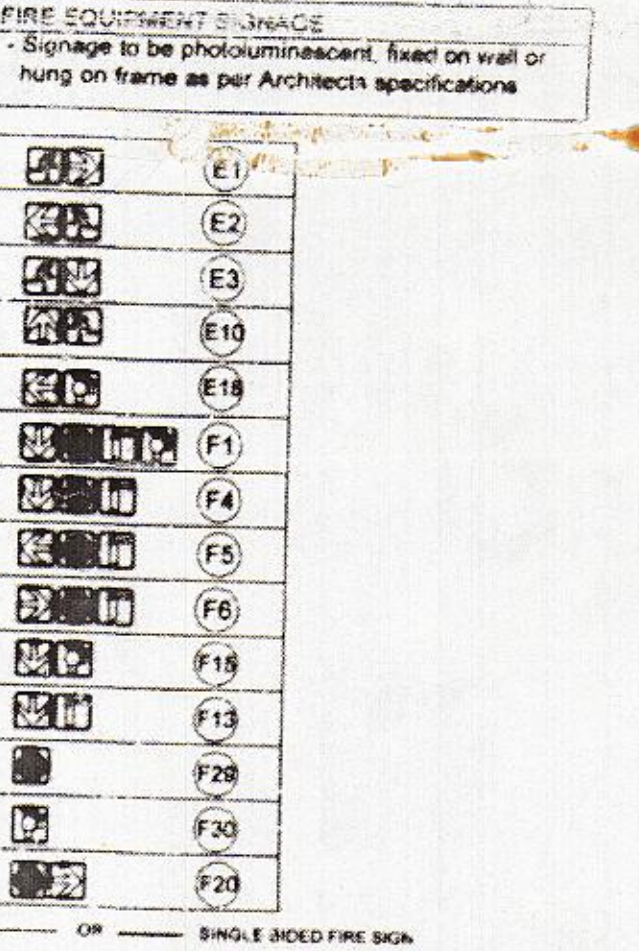 FIRE EQUIPMENT SIGNAGE
- Signage to be photoluminascent, fixed on wall or
hung on frame as per Architects specifications
E1
E2
E3
E10
E18
F1
F4
F5
F6
F15
F13
F29
F30
F20
OR
SINGLE SIDED FIRE SIGN